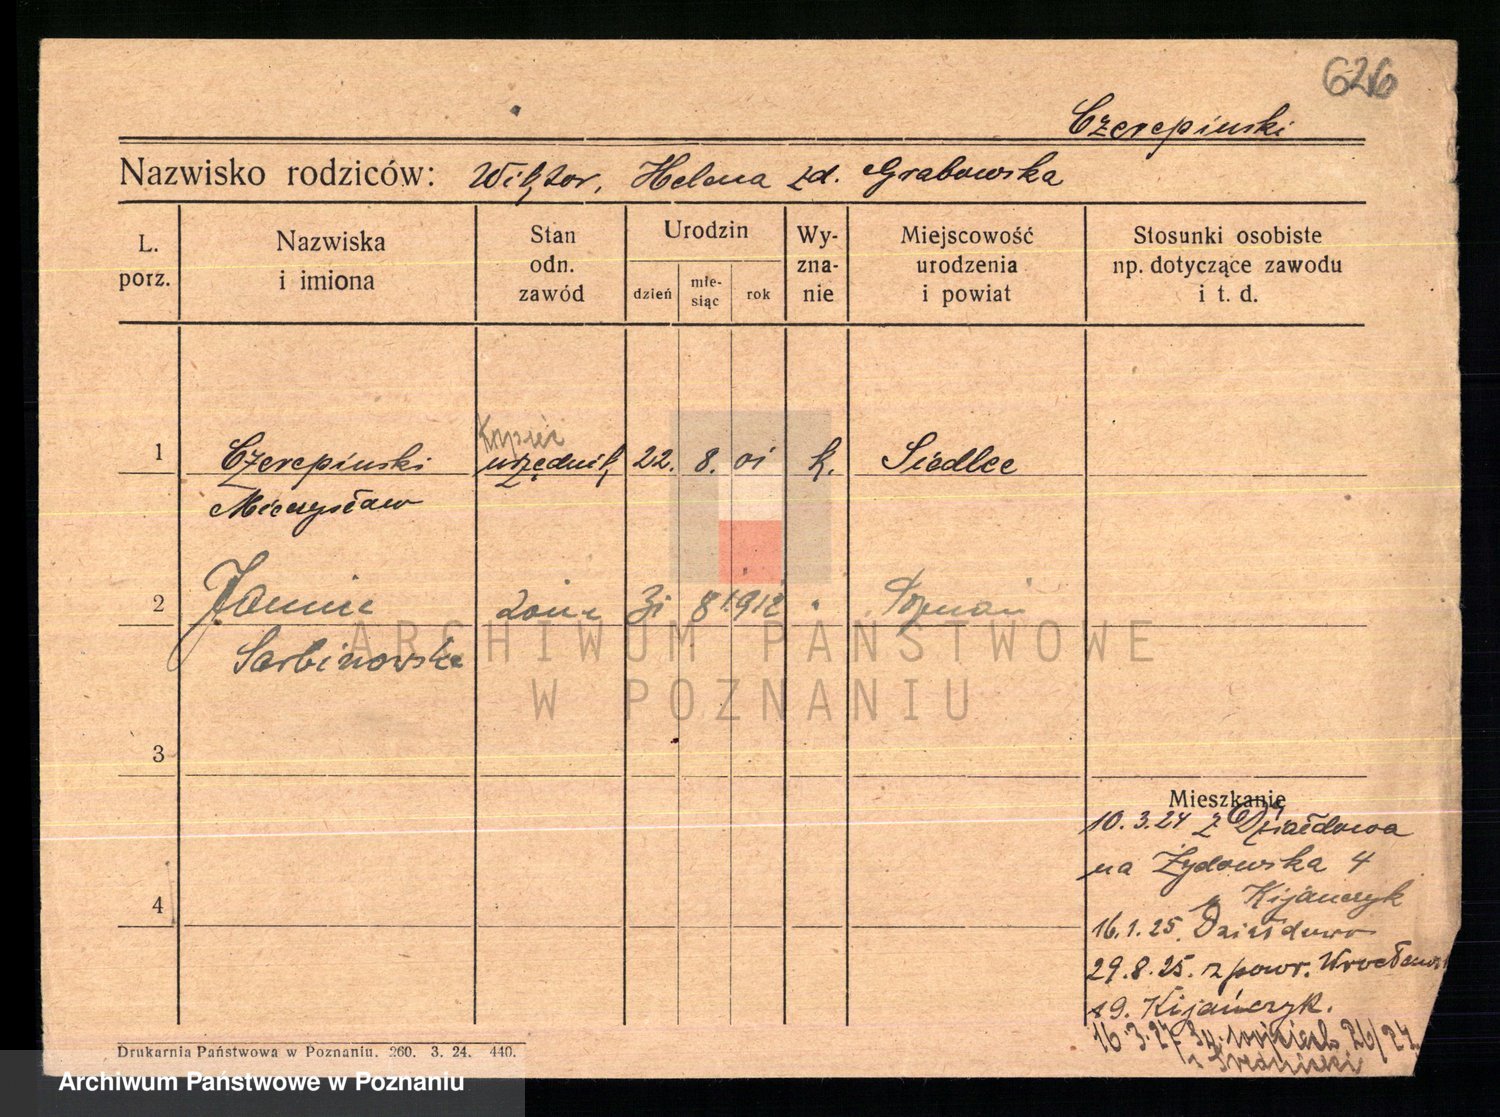 626
Czerepiński
Nazwisko rodziców: Wiktor, Helena zd. Grabowska
L. porz.
Nazwiska i imiona
Stan odn. zawód
Urodzin
dzień
mie-siąc
rok
Wy-zna-nie
Miejscowość urodzenia i powiat
Stosunki osobiste np. dotyczące zawodu i t. d.
Kupiec
1 Czerepiński urzędnik 22. 8. 01 k. Siedlce
Mieczysław
2 Janina żona 31 8 1912 " Poznań
Sarbinowska
ARCHIWUM PAŃSTWOWE
W POZNANIU
3
Mieszkanie
10.3.24 z Działdowa
na Żydowska 4
4
p Kijańczyk
16.1.25. Działdowo
29.8.25. z powr. Wrocławs
19. Kijańczyk.
16.3.27 Wojciech 26/27.
Drukarnia Państwowa w Poznaniu. 260. 3. 24. 440.
Archiwum Państwowe w Poznaniu